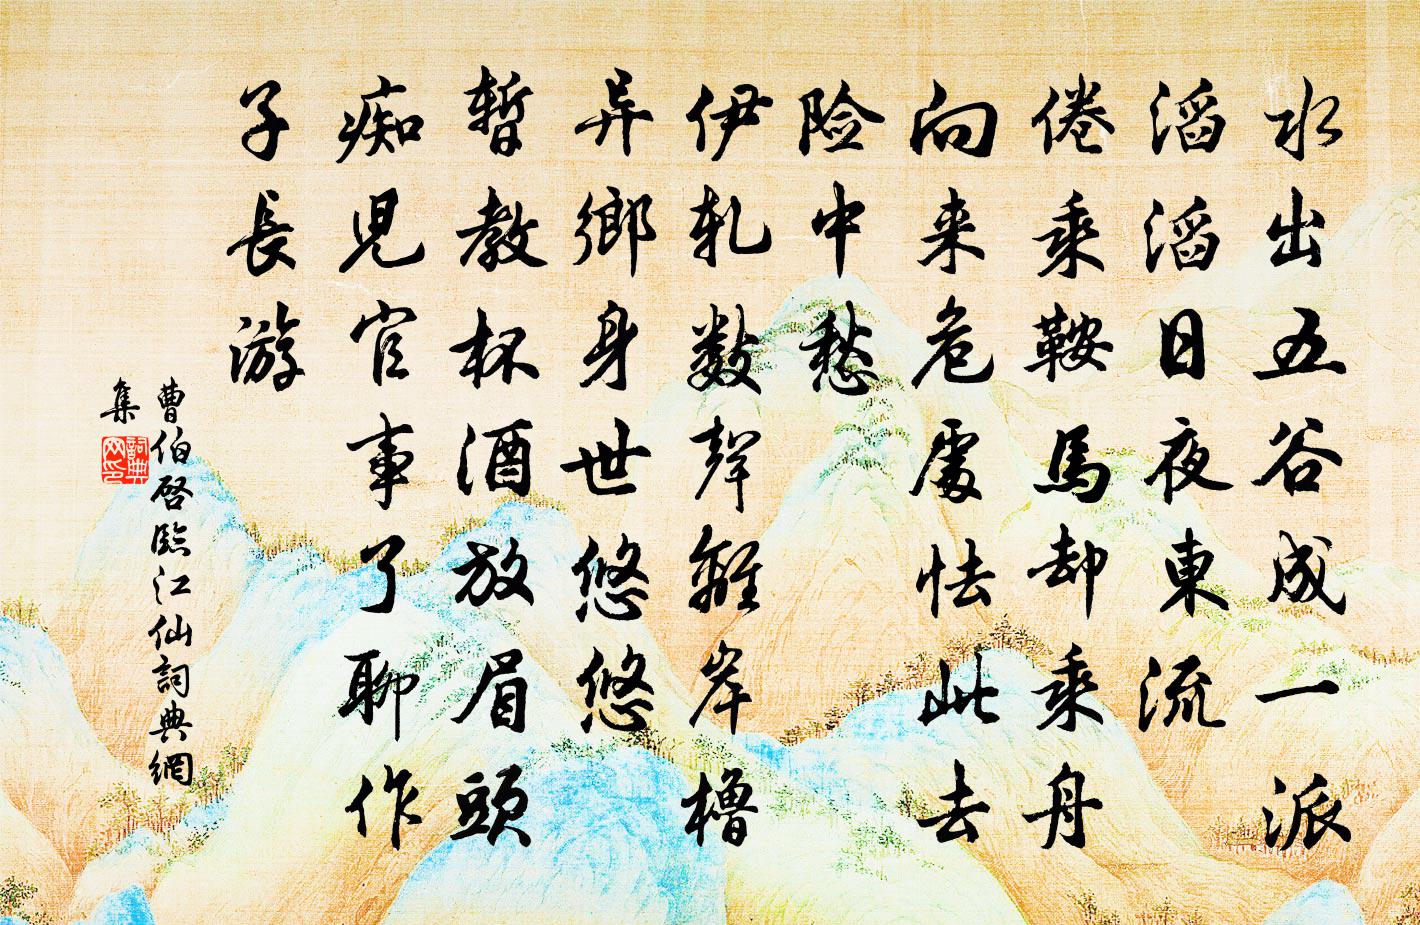 水出五谷成一派
滔滔日夜東流
倦乘鞍馬却乘舟
向来危處怯此去
险中愁
伊轧数聲離岸櫓
异鄉身世悠悠
暫教杯酒放眉頭
痴児官事了聊作
子長游
曹伯啓臨江仙詞典網
集
詞典网印